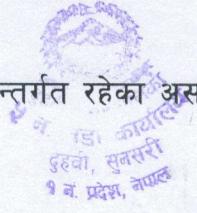 न्तर्गत रहेका अस
न. वडा कार्यालय
दुहवी, सुनसरी
१ नं. प्रदेश, नेपाल